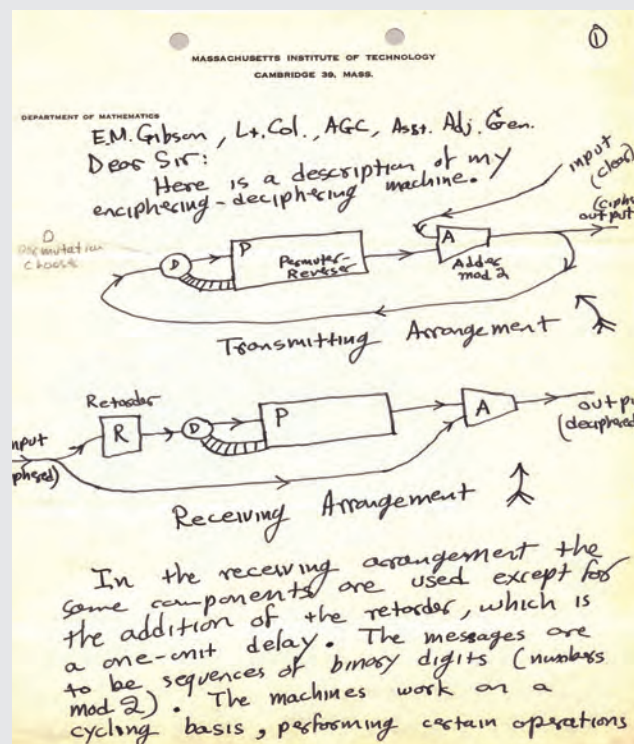 ①
MASSACHUSETTS INSTITUTE OF TECHNOLOGY
CAMBRIDGE 39, MASS.
DEPARTMENT OF MATHEMATICS
E.M. Gibson, Lt. Col., AGC, Asst. Adj. Gen.
Dear Sir:
Here is a description of my
enciphering-deciphering machine.
input
(clear)
(ciph
output
D
Permutation
D
P
Permuter-
Reverser
A
Adder
mod 2
Transmitting Arrangement
Retarder
R
D
P
A
outpu
(deciphered
input
phered)
Receiving Arrangement
In the receiving arrangement the
same components are used except for
the addition of the retarder, which is
a one-unit delay. The messages are
to be sequences of binary digits (numbers
mod 2). The machines work on a
cycling basis, performing certain operations